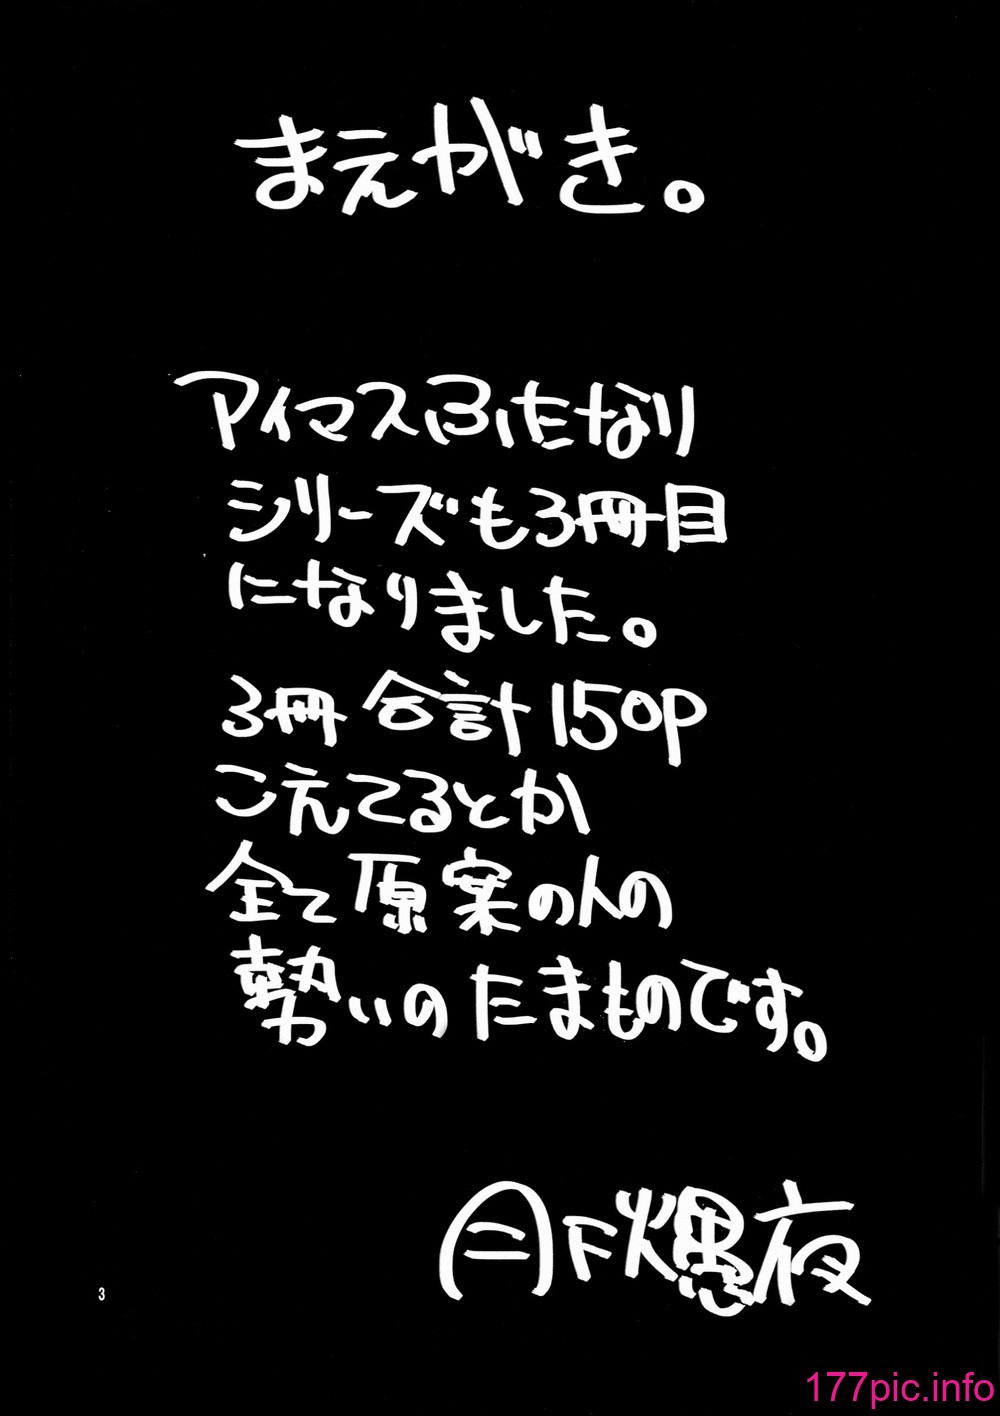 まえがき。
アイマスふたなり
シリーズも3冊目
になりました。
3冊 合計150P
こえてるとか
全て原案の人の
勢いのたまものです。
月下燻夜
3
177pic.info